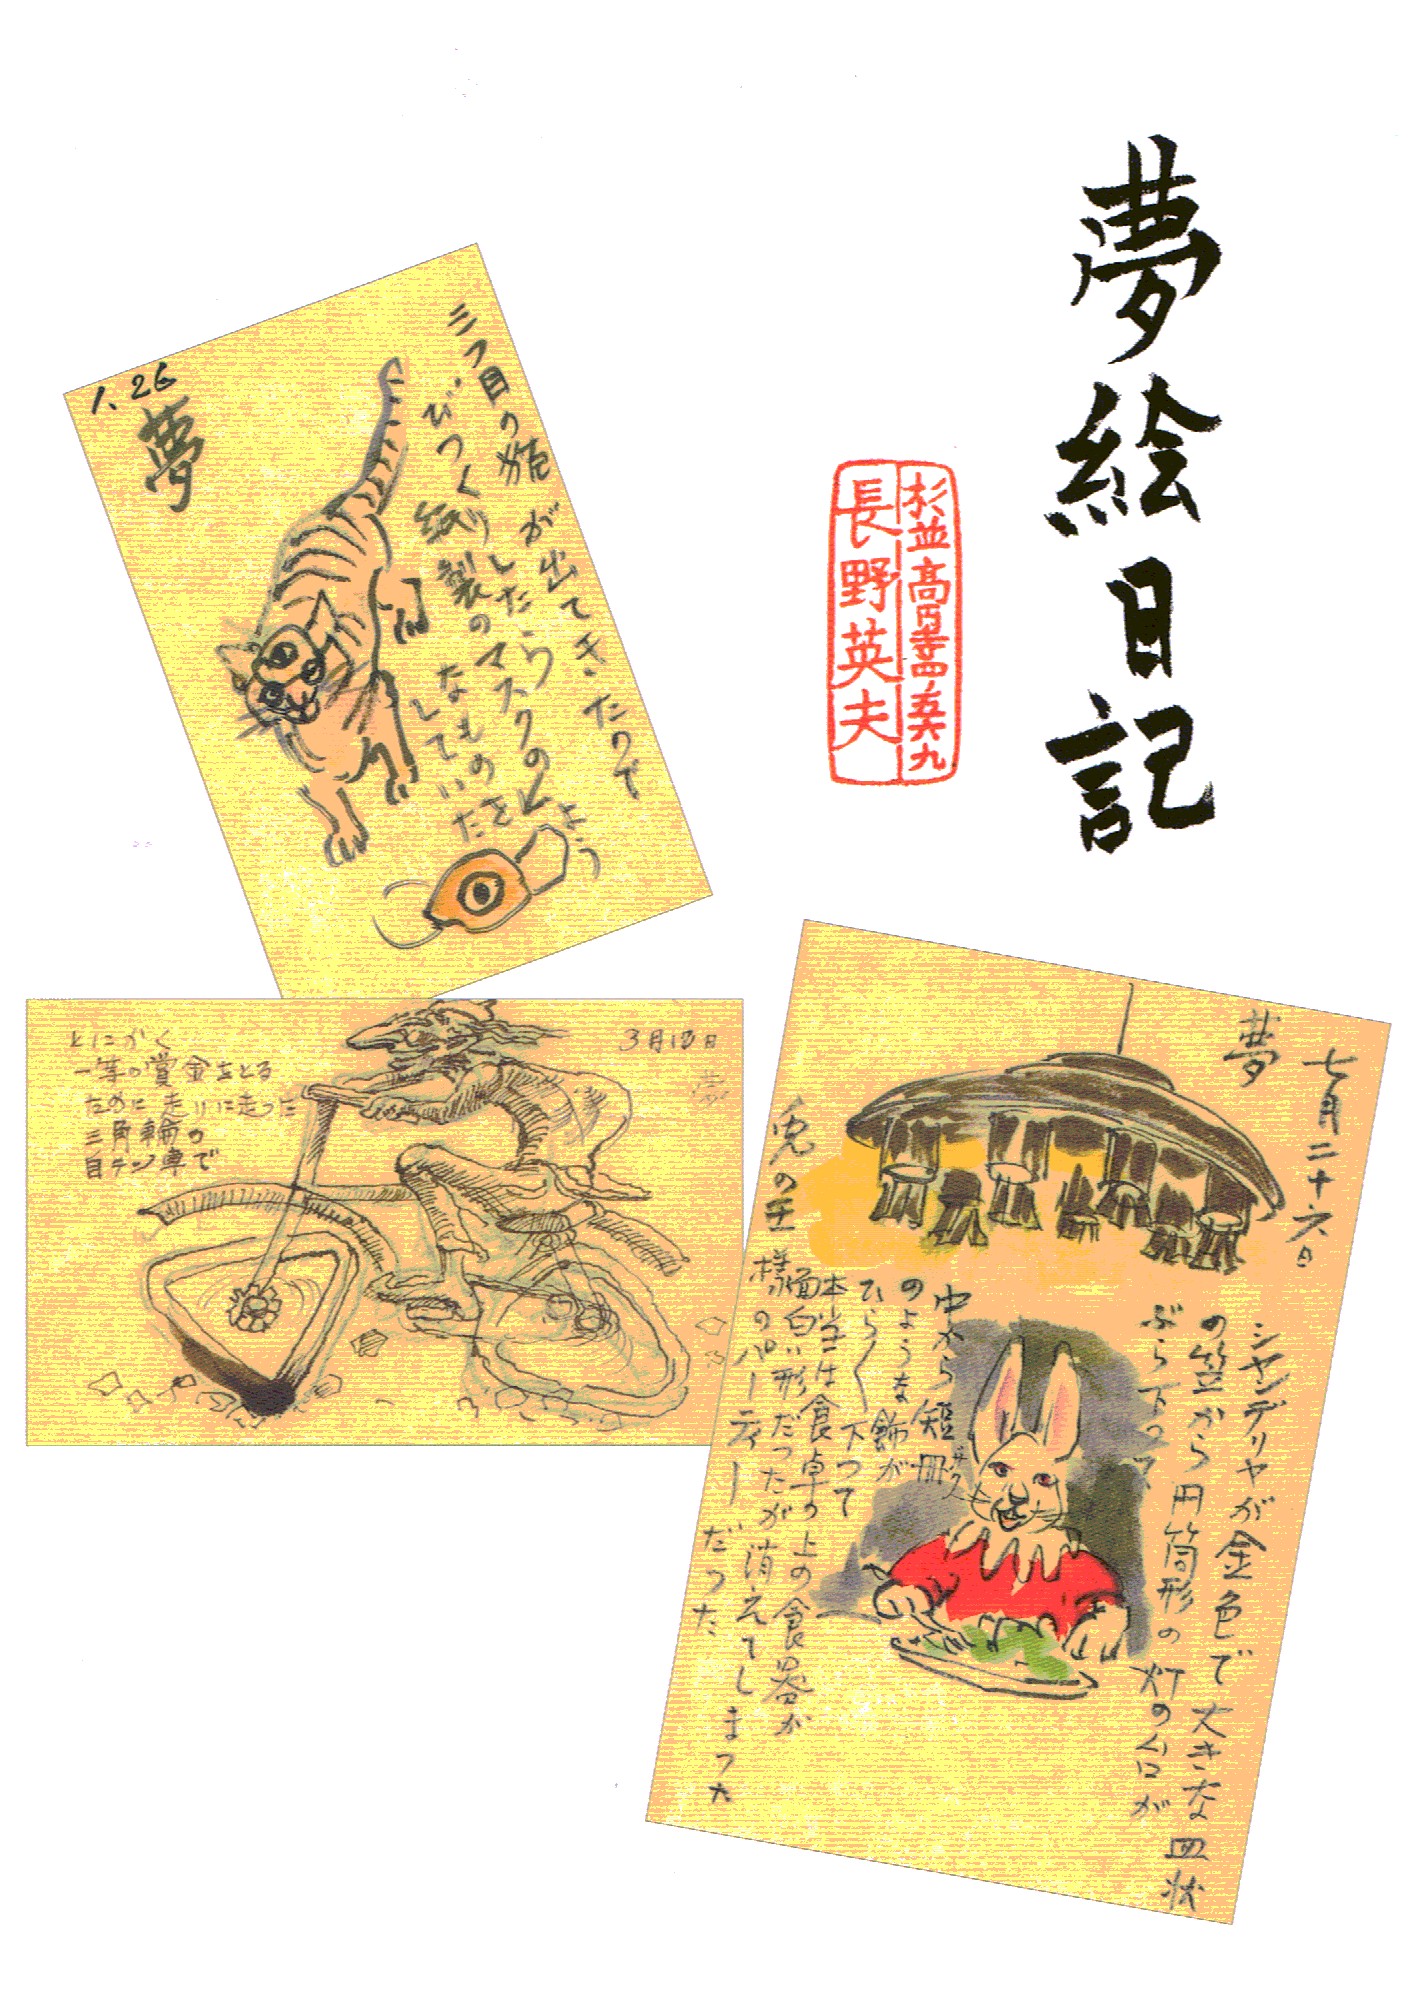 夢絵日記
杉並高円寺四ノ五六九
長野英夫
1.26
夢
三つ目の猫が出てきたので
びっくりしたらマスクのよう
紙製の
なものを
していた
3月13日
夢
とにかく
一等の賞金をとる
ために走りに走った
三角輪の
自テン車で
七月二十六日
夢
シャンデリヤが金色で大きな皿状
の笠から円筒形の灯の台が
ぶら下って
中から短冊
のような飾が
ひらひら下って
本当は食卓の上の食器が
面白い形だったが消えてしまった
兎の王様のパーティーだった